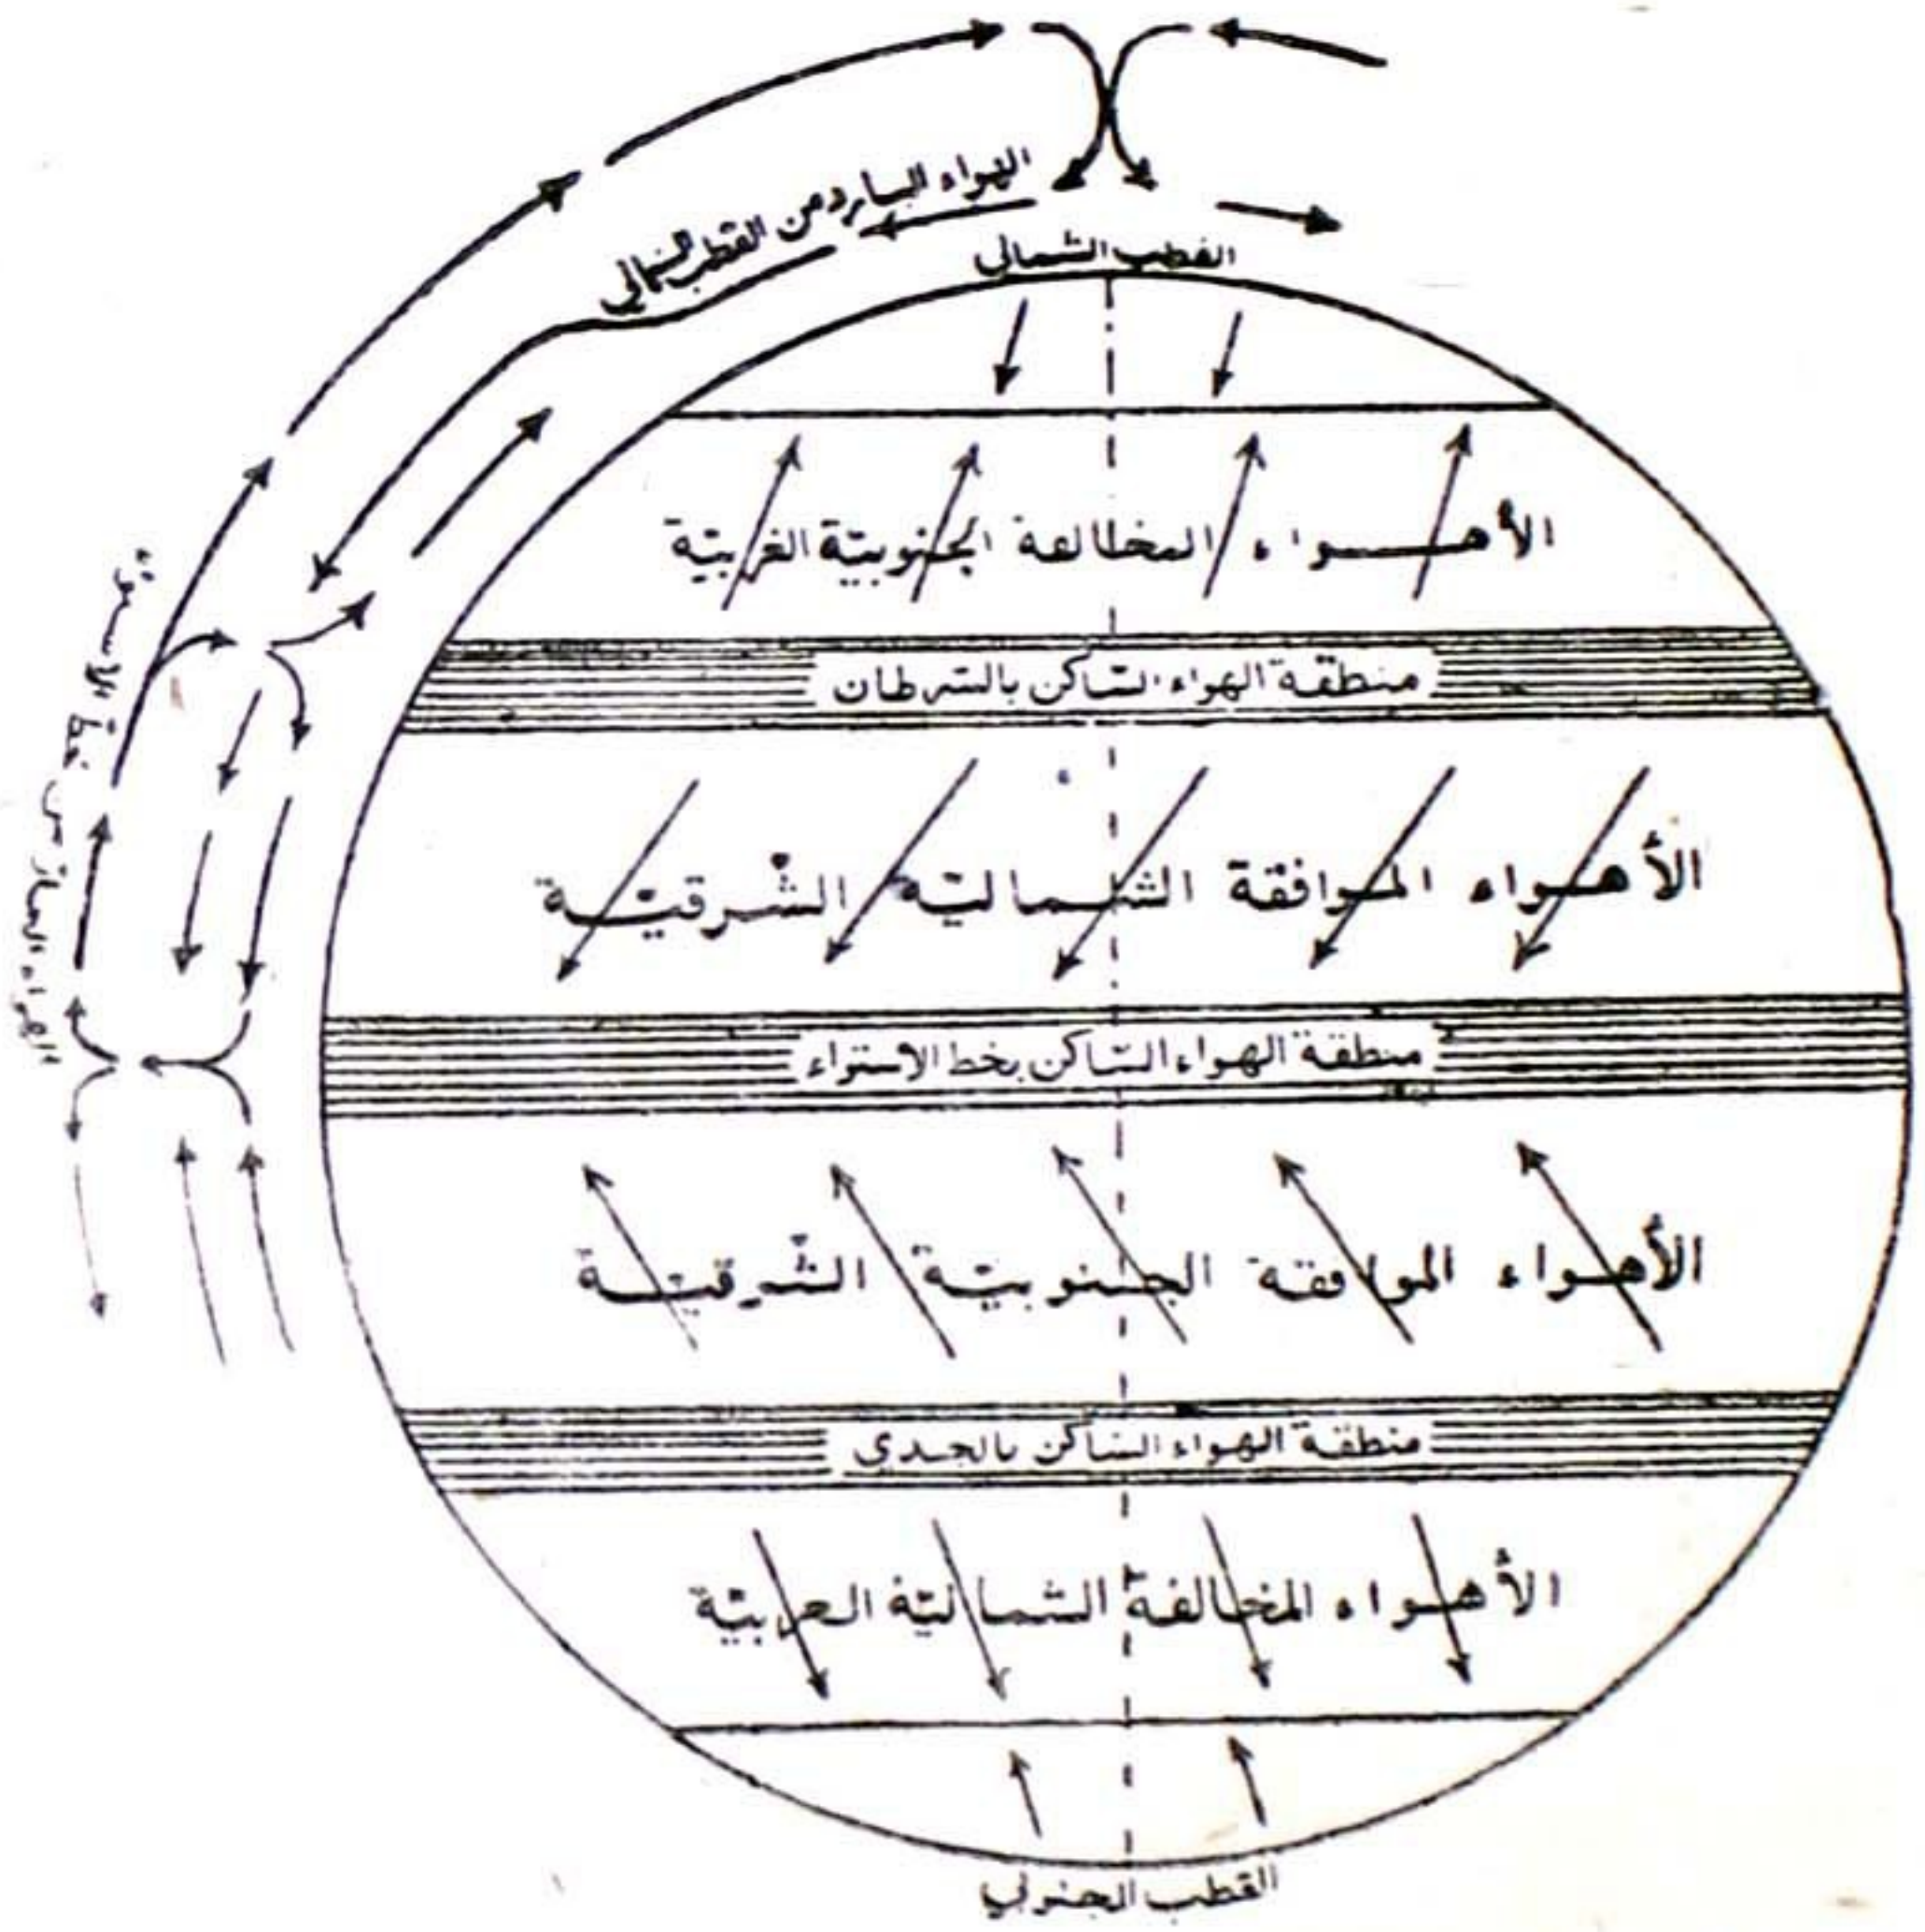 الهواء البارد من القطب الشمالي
القطب الشمالي
الأهواء المخالفة الجنوبيّة الغربيّة
منطقة الهواء السّاكن بالسّرطان
الأهواء الموافقة الشّماليّة الشّرقيّة
الهواء الحارّ من خطّ الاستواء
منطقة الهواء السّاكن بخط الاستواء
الأهواء الموافقة الجنوبيّة الشّرقيّة
منطقة الهواء السّاكن بالجدي
الأهواء المخالفة الشّماليّة الغربيّة
القطب الجنوبي